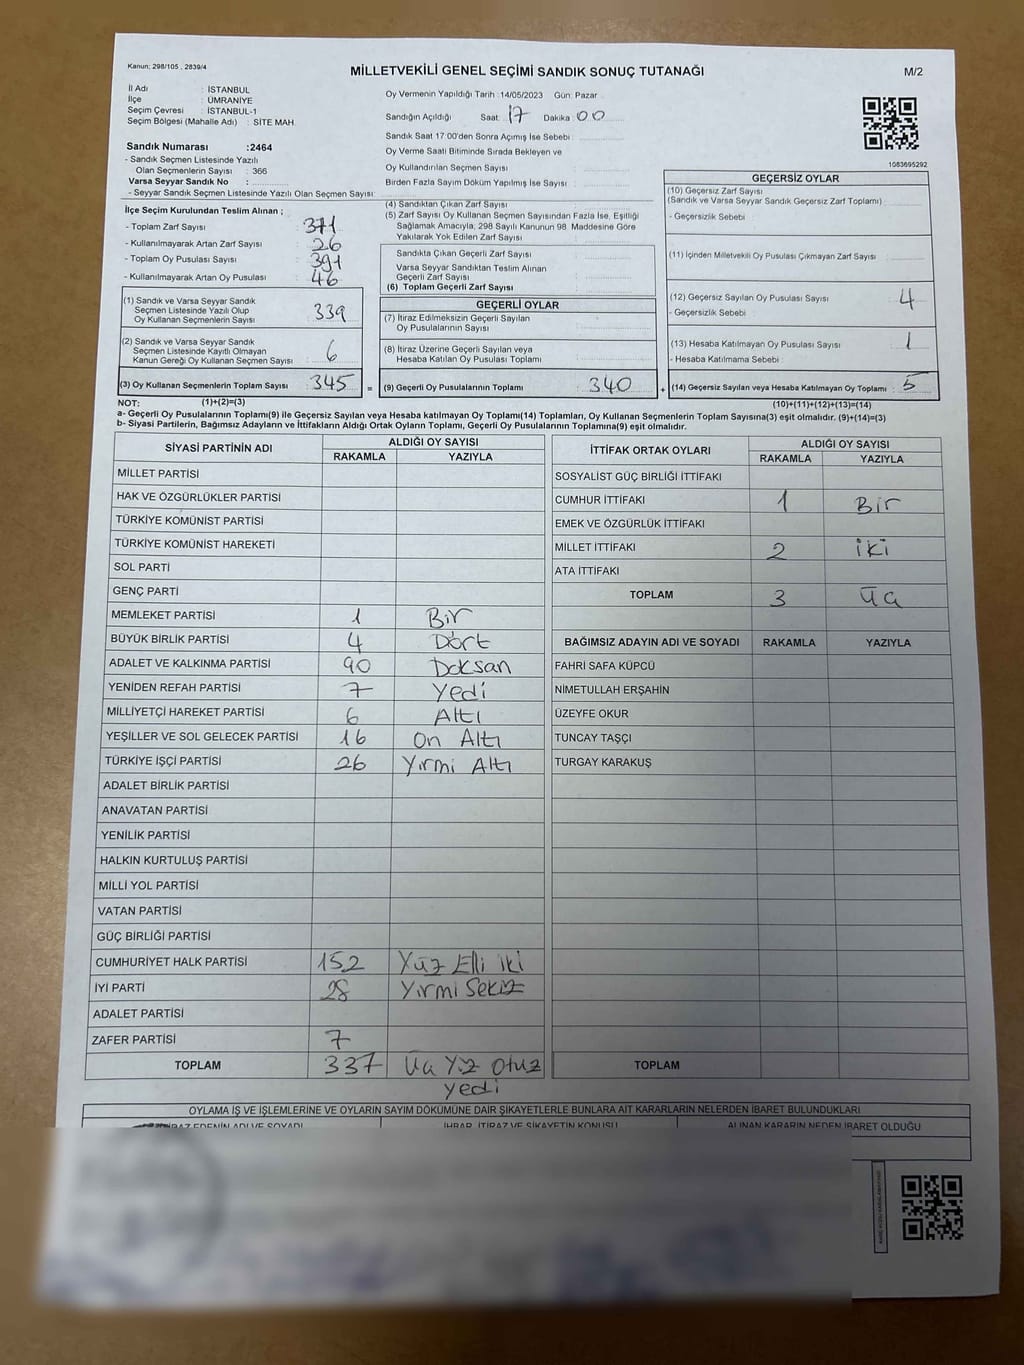 Kanun: 298/105 , 2839/4
MİLLETVEKİLİ GENEL SEÇİMİ SANDIK SONUÇ TUTANAĞI
M/2
İl Adı : İSTANBUL
İlçe : ÜMRANİYE
Seçim Çevresi : İSTANBUL-1
Seçim Bölgesi (Mahalle Adı) : SİTE MAH.
Sandık Numarası :2464
- Sandık Seçmen Listesinde Yazılı
Olan Seçmenlerin Sayısı : 366
Varsa Seyyar Sandık No :
- Seyyar Sandık Seçmen Listesinde Yazılı Olan Seçmen Sayısı:
İlçe Seçim Kurulundan Teslim Alınan ;
- Toplam Zarf Sayısı : 371
- Kullanılmayarak Artan Zarf Sayısı : 26
- Toplam Oy Pusulası Sayısı : 391
- Kullanılmayarak Artan Oy Pusulası : 46
(1) Sandık ve Varsa Seyyar Sandık
Seçmen Listesinde Yazılı Olup
Oy Kullanan Seçmenlerin Sayısı : 339
(2) Sandık ve Varsa Seyyar Sandık
Seçmen Listesinde Kayıtlı Olmayan
Kanun Gereği Oy Kullanan Seçmen Sayısı : 6
(3) Oy Kullanan Seçmenlerin Toplam Sayısı : 345
Oy Vermenin Yapıldığı Tarih :14/05/2023 Gün: Pazar
Sandığın Açıldığı Saat: 17 Dakika: 00
Sandık Saat 17:00'den Sonra Açımış İse Sebebi :
Oy Verme Saati Bitiminde Sırada Bekleyen ve
Oy Kullandırılan Seçmen Sayısı :
Birden Fazla Sayım Döküm Yapılmış İse Sayısı :
(4) Sandıktan Çıkan Zarf Sayısı
(5) Zarf Sayısı Oy Kullanan Seçmen Sayısından Fazla İse, Eşitliği
Sağlamak Amacıyla; 298 Sayılı Kanunun 98. Maddesine Göre
Yakılarak Yok Edilen Zarf Sayısı :
Sandıkta Çıkan Geçerli Zarf Sayısı :
Varsa Seyyar Sandıktan Teslim Alınan
Geçerli Zarf Sayısı :
(6) Toplam Geçerli Zarf Sayısı :
GEÇERLİ OYLAR
(7) İtiraz Edilmeksizin Geçerli Sayılan
Oy Pusulalarının Sayısı :
(8) İtiraz Üzerine Geçerli Sayılan veya
Hesaba Katılan Oy Pusulası Toplamı :
= (9) Geçerli Oy Pusulalarının Toplamı : 340
1083695292
GEÇERSİZ OYLAR
(10) Geçersiz Zarf Sayısı
(Sandık ve Varsa Seyyar Sandık Geçersiz Zarf Toplamı) :
- Geçersizlik Sebebi :
(11) İçinden Milletvekili Oy Pusulası Çıkmayan Zarf Sayısı :
(12) Geçersiz Sayılan Oy Pusulası Sayısı : 4
- Geçersizlik Sebebi :
(13) Hesaba Katılmayan Oy Pusulası Sayısı : 1
- Hesaba Katılmama Sebebi :
+ (14) Geçersiz Sayılan veya Hesaba Katılmayan Oy Toplamı : 5
NOT: (1)+(2)=(3) (10)+(11)+(12)+(13)=(14)
a- Geçerli Oy Pusulalarının Toplamı(9) ile Geçersiz Sayılan veya Hesaba katılmayan Oy Toplamı(14) Toplamları, Oy Kullanan Seçmenlerin Toplam Sayısına(3) eşit olmalıdır. (9)+(14)=(3)
b- Siyasi Partilerin, Bağımsız Adayların ve İttifakların Aldığı Ortak Oyların Toplamı, Geçerli Oy Pusulalarının Toplamına(9) eşit olmalıdır.
SİYASİ PARTİNİN ADI ALDIĞI OY SAYISI
RAKAMLA YAZIYLA
MİLLET PARTİSİ
HAK VE ÖZGÜRLÜKLER PARTİSİ
TÜRKİYE KOMÜNİST PARTİSİ
TÜRKİYE KOMÜNİST HAREKETİ
SOL PARTİ
GENÇ PARTİ
MEMLEKET PARTİSİ 1 Bir
BÜYÜK BİRLİK PARTİSİ 4 Dört
ADALET VE KALKINMA PARTİSİ 90 Doksan
YENİDEN REFAH PARTİSİ 7 Yedi
MİLLİYETÇİ HAREKET PARTİSİ 6 Altı
YEŞİLLER VE SOL GELECEK PARTİSİ 16 On Altı
TÜRKİYE İŞÇİ PARTİSİ 26 Yirmi Altı
ADALET BİRLİK PARTİSİ
ANAVATAN PARTİSİ
YENİLİK PARTİSİ
HALKIN KURTULUŞ PARTİSİ
MİLLİ YOL PARTİSİ
VATAN PARTİSİ
GÜÇ BİRLİĞİ PARTİSİ
CUMHURİYET HALK PARTİSİ 152 Yüz Elli iki
İYİ PARTİ 28 Yirmi Sekiz
ADALET PARTİSİ
ZAFER PARTİSİ 7
TOPLAM 337 Üç Yüz Otuz
yedi
İTTİFAK ORTAK OYLARI ALDIĞI OY SAYISI
RAKAMLA YAZIYLA
SOSYALİST GÜÇ BİRLİĞİ İTTİFAKI
CUMHUR İTTİFAKI 1 Bir
EMEK VE ÖZGÜRLÜK İTTİFAKI
MİLLET İTTİFAKI 2 iki
ATA İTTİFAKI
TOPLAM 3 Üç
BAĞIMSIZ ADAYIN ADI VE SOYADI RAKAMLA YAZIYLA
FAHRİ SAFA KÜPCÜ
NİMETULLAH ERŞAHİN
ÜZEYFE OKUR
TUNCAY TAŞÇI
TURGAY KARAKUŞ
TOPLAM
OYLAMA İŞ VE İŞLEMLERİNE VE OYLARIN SAYIM DÖKÜMÜNE DAİR ŞİKAYETLERLE BUNLARA AİT KARARLARIN NELERDEN İBARET BULUNDUKLARI
İHBAR, İTİRAZ VE ŞİKAYETİN KONUSU ALINAN KARARIN NEDEN İBARET OLDUĞU